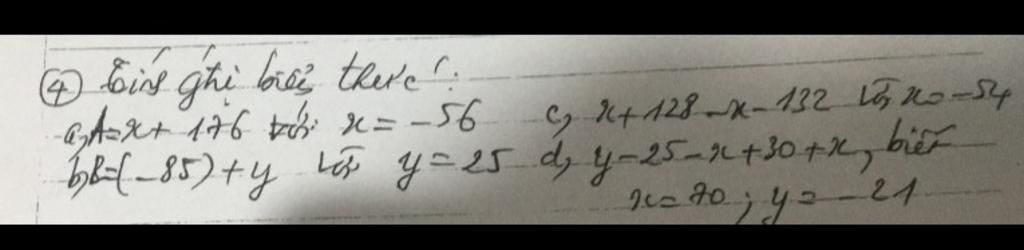 ④ Tính ghi biểu thức:
a, A=x+176 với: x=-56 c, x+128-x-132 với x=-54
b, B=(-85)+y với y=25 d, y-25-x+30+x, biết
x=70; y=-21